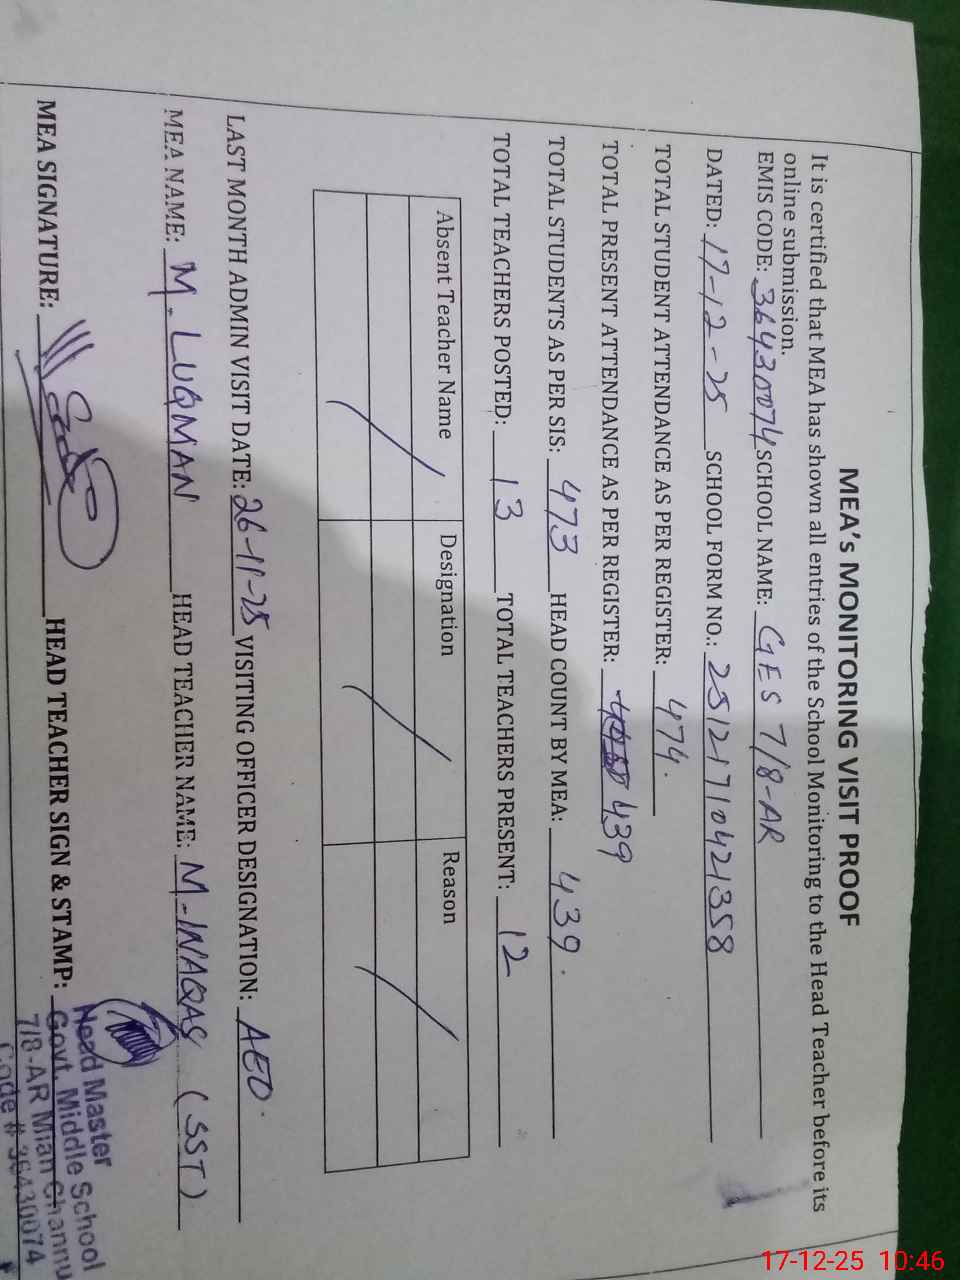 MEA's MONITORING VISIT PROOF
It is certified that MEA has shown all entries of the School Monitoring to the Head Teacher before its
online submission.
EMIS CODE: 36430074 SCHOOL NAME: GES 7/8-AR
DATED: 17-12-25 SCHOOL FORM NO.: 25121710421358
TOTAL STUDENT ATTENDANCE AS PER REGISTER: 474.
TOTAL PRESENT ATTENDANCE AS PER REGISTER: 439
TOTAL STUDENTS AS PER SIS: 473 HEAD COUNT BY MEA: 439.
TOTAL TEACHERS POSTED: 13 TOTAL TEACHERS PRESENT: 12
Absent Teacher Name Designation Reason
LAST MONTH ADMIN VISIT DATE: 26-11-25 VISITING OFFICER DESIGNATION: AEO.
MEA NAME: M. LUQMAN HEAD TEACHER NAME: M-WAQAS (SST)
MEA SIGNATURE: HEAD TEACHER SIGN & STAMP:
Head Master
Govt. Middle School
7/8-AR Mian Channu
Code # 36430074
17-12-25 10:46